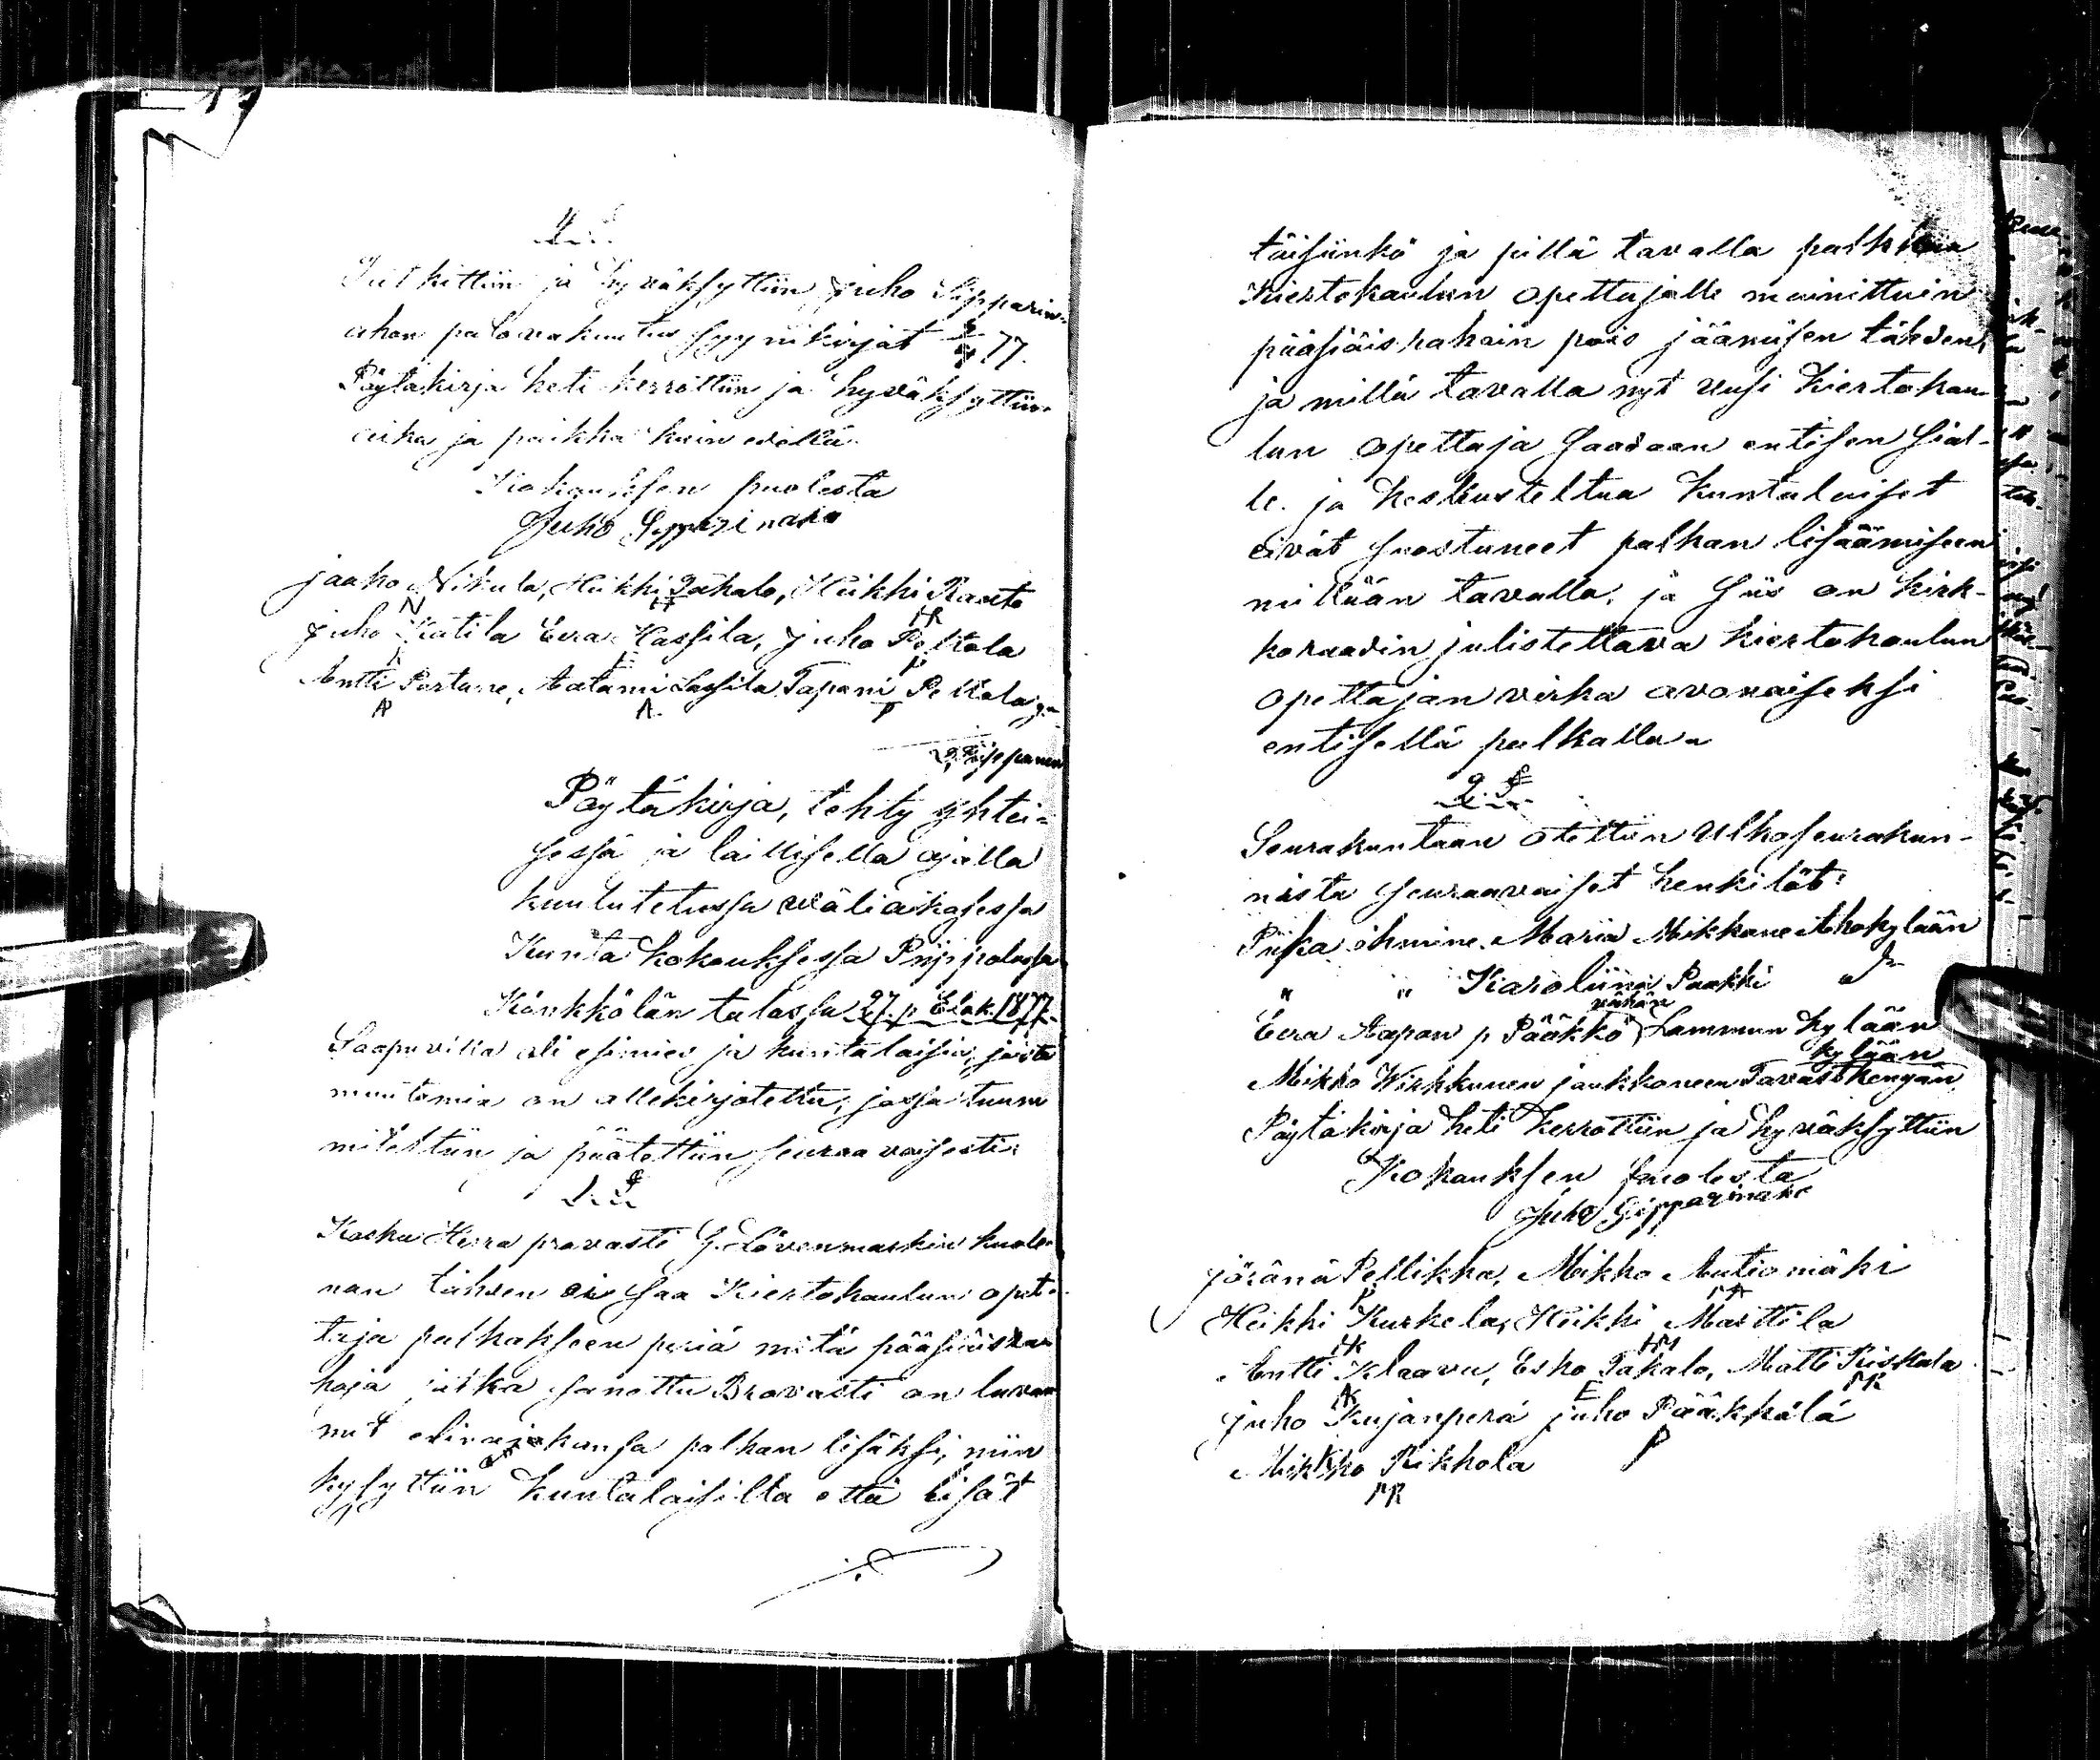 4. §.
Tutkittiin ja hyväksyttiin Juho Sipparin-
ahon palovakuutus syynikirjat 77.
Pöytäkirja heti kerrottiin ja hyväksyttiin
aika ja paikka kuin edellä.
Kokouksen puolesta
Juho Sipparinaho
Jaako Nikula, Heikki Takalo, Heikki Ranto
N H HR
Juho Katila Eera Kassila, Juho Peltola
K E P
Antti Portune, Aatami Lassila Tapani Peltola
AP A. P
Pöytäkirja, tehty yhtei-
sessä ja laillisella ajalla
kuulutetussa väliaikasessa
Kunta kokouksessa Piippolassa
Känkkölän talossa 27. p. Elok. 1877.
Saapuvilla oli esimies ja kuntalaisia, joista
muutamia on allekirjotettu, jossa tuum
mitettiin ja päätettiin seuraavaisesti:
1. §.
Koska Herra provasti G. Lövenmarkin kuole-
man tähden ei saa Kiertokoulun opet-
taja palkakseen periä mitä pääsiäisra
hoja jotka sanottu Brovasti on luvan
nut elinajakansa palkan lisäksi, niin
kysyttiin kuntalaisilta että lisät
täisiinkö ja jillä tavalla palkkaa
Kiertokoulun opettajalle mainittuin
pääsiäisrahain pois jäämisen tähden,
ja millä tavalla nyt uusi kiertokou-
lun opettaja saadaan entisen sial-
le. ja keskusteltua kuntalaiset
eivät suostuneet palkan lisäämiseen
millään tavalla, ja siis on kirk-
koraadin julistettava kiertokoulun
opettajan virka avonaiseksi
entisellä palkalla.
2. §.
Seurakuntaan otettiin Ulkoseurakun-
nista seuraavaiset henkilöt:
Piika ihmine. Maria Mikkone Ahokylään
" " Karoliina Paakki
vähän
Eera Aapan p Pääkkö Lammun kylään
kylään
Mikko Wirkkunen jaukkoneen Tavastkengän
Pöytäkirja heti kerrottiin ja hyväksyttiin
Kokouksen puolesta
Juho Sipparinaho
Jöränä Pellikka, Mikko Autiomäki
P MA
Heikki Kurkela, Heikki Marttila
HK HM
Antti Klaavu, Esko Takalo, Matti Riskala
AK E MR
Juho Kujanperä Juho Pääkkölä
K P
Mikko Rikkola
MR